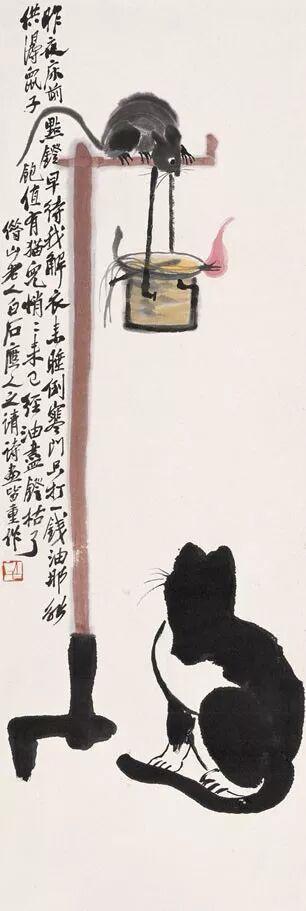 昨夜床前點鐙早待我解衣来睡倒寒門只打一錢油那能
供淂鼠子飽值有猫兒悄〻来已經油盡鐙枯了
借山老人白石應人之請詩畫皆重作